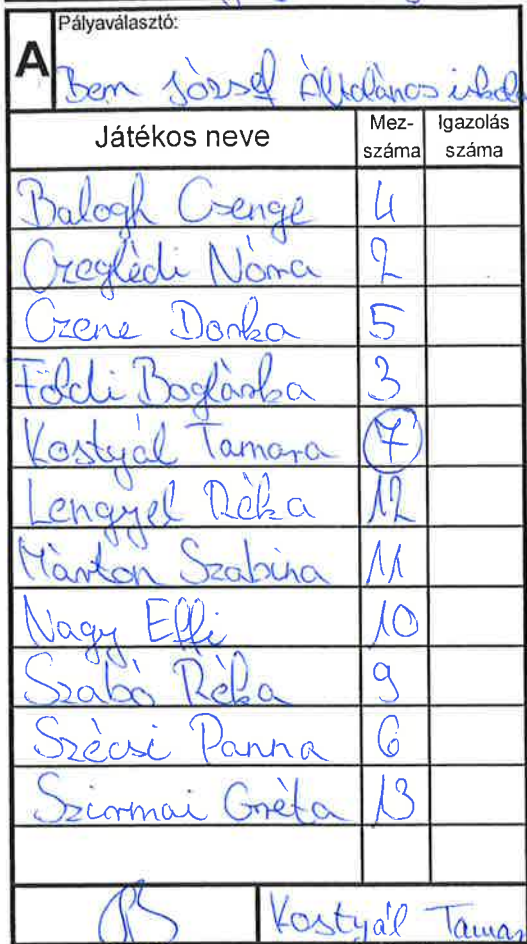 Pályaválasztó:
A
Bem József Általános iskola
Játékos neve Mez-száma Igazolás száma
Balogh Csenge 4
Czeglédi Nóra 2
Czene Dorka 5
Földi Boglárka 3
Kostyál Tamara 7
Lengyel Réka 12
Márton Szabina 11
Nagy Effi 10
Szabó Réka 9
Szécsi Panna 6
Szirmai Gréta 13
Kostyál Tamar